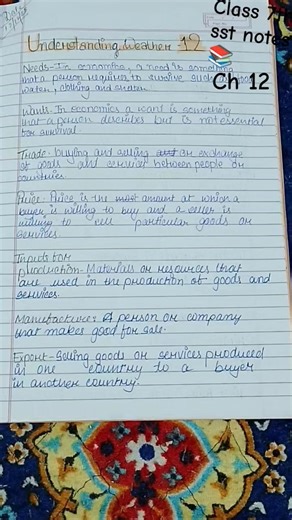 Class 7
sst note
📚
Ch 12
Understanding Weather 12
Needs - In economics, a need is something
that a person requires to survive such
water, clothing and
Wants - In economics a want is something
that a person describes but is not essential
for survival
Trade - buying and selling or exchange
of goods and services between people or
countries.
Price - Price is the most amount at which a
buyer is willing to buy and a celler is
willing to cell particular goods or
services.
Inputs for
production - Materials or resources that
are used in the production of goods and
services.
Manufacturer - A person or company
that makes good for sale.
Export - Selling goods or services produced
in one country to a buyer
in another country.